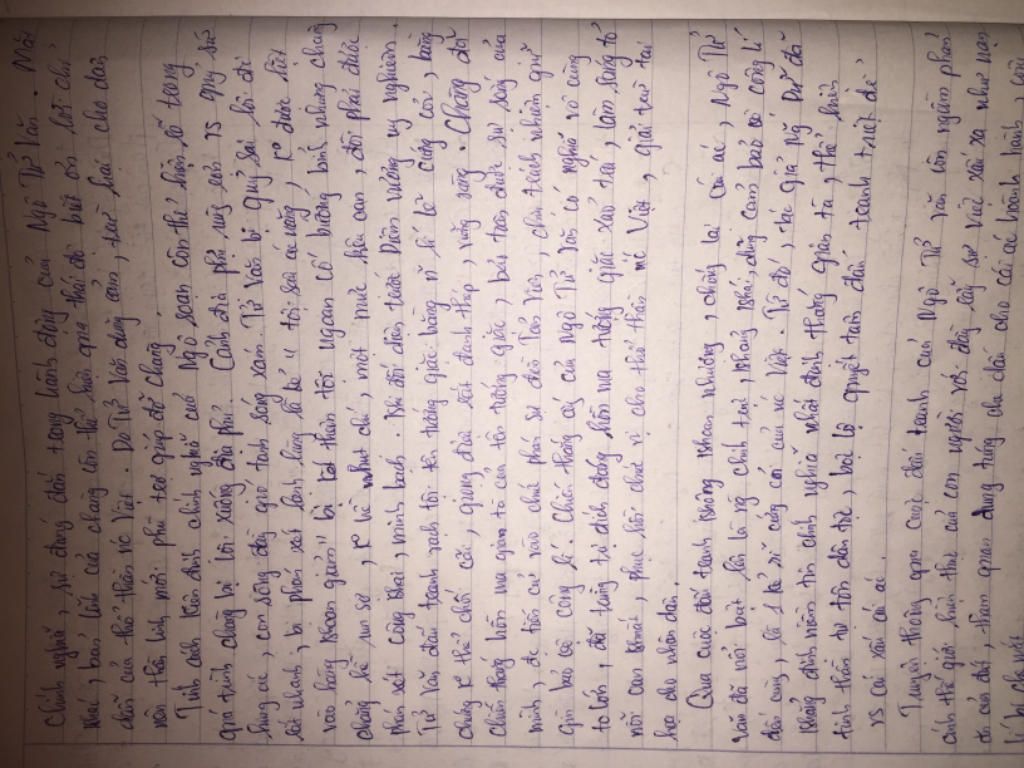 Chính nghĩa, sự đúng đắn trong hành động của Ngô Tử Văn. Mặt
khác, bản lĩnh của chàng còn thể hiện qua thái độ biết ơn
chân của thổ thần nc Việt. Do Tử Văn dũng cảm, trừ hại cho dân
nên thổ thần mới phù trợ giúp đỡ chàng.
Tính cách kiên định chính nghĩa của Ngô Soạn còn thể hiện rõ trong
quá trình chàng bị lôi xuống địa phủ. Cảnh địa phủ rùng rợn vs quỷ sứ
hung ác, con sông đầy gió tanh sóng xám. Tử Văn bị quỷ sai lôi đi
rất nhanh, bị phán xét lạnh lùng là kẻ "tội sâu ác nặng, k được liệt
vào hàng khoan giảm" bị tên hung thần tội ngoan cố bướng bỉnh nhưng chàng
chẳng hề run sợ, k hề nhụt chí, một mực kêu oan, đòi phải được
phán xét công khai, minh bạch. Khi đối diện trước Diêm Vương uy nghiêm
Tử Văn đấu tranh vạch tội tên tướng giặc bằng lí lẽ cứng cỏi, bằng
chứng k thể chối cãi, giọng điệu rất đanh thép, vững vàng. Chàng đã
chiến thắng hồn ma gian tà của tên tướng giặc, bảo toàn được sự sống của
mình, đc tiến cử vào chức phán sự đền Tản Viên, chịu trách nhiệm giữ
gìn bảo vệ công lí. Chiến thắng ấy của Ngô Tử Văn có nghĩa vô cùng
to lớn, đã trừng trị đích đáng hồn ma tướng giặc xảo trá, làm sáng tỏ
nỗi oan khuất, phục hồi chức vị cho thổ thần nc Việt, giải trừ tai
họa cho nhân dân.
Qua cuộc đấu tranh không khoan nhượng, chống lại cái ác, Ngô Tử
Văn đã nổi bật lên là ng chính trực, khảng khái, dũng cảm bảo vệ công lí
đến cùng, là 1 kẻ sĩ cứng cỏi của nc Việt. Từ đó, tác giả Ng Dữ đã
khẳng định niềm tin chính nghĩa nhất định thắng gian tà, thể hiện
tinh thần tự tôn dân tộc, bộc lộ quyết tâm đấu tranh triệt để
vs cái xấu cái ác.
Truyện thông qua cuộc đấu tranh của Ngô Tử Văn còn ngầm phản
ánh thế giới hiện thực của con người với đầy rẫy sự việc xấu xa như nạn
tham quan dung túng che dấu cho cái ác hoành hành,